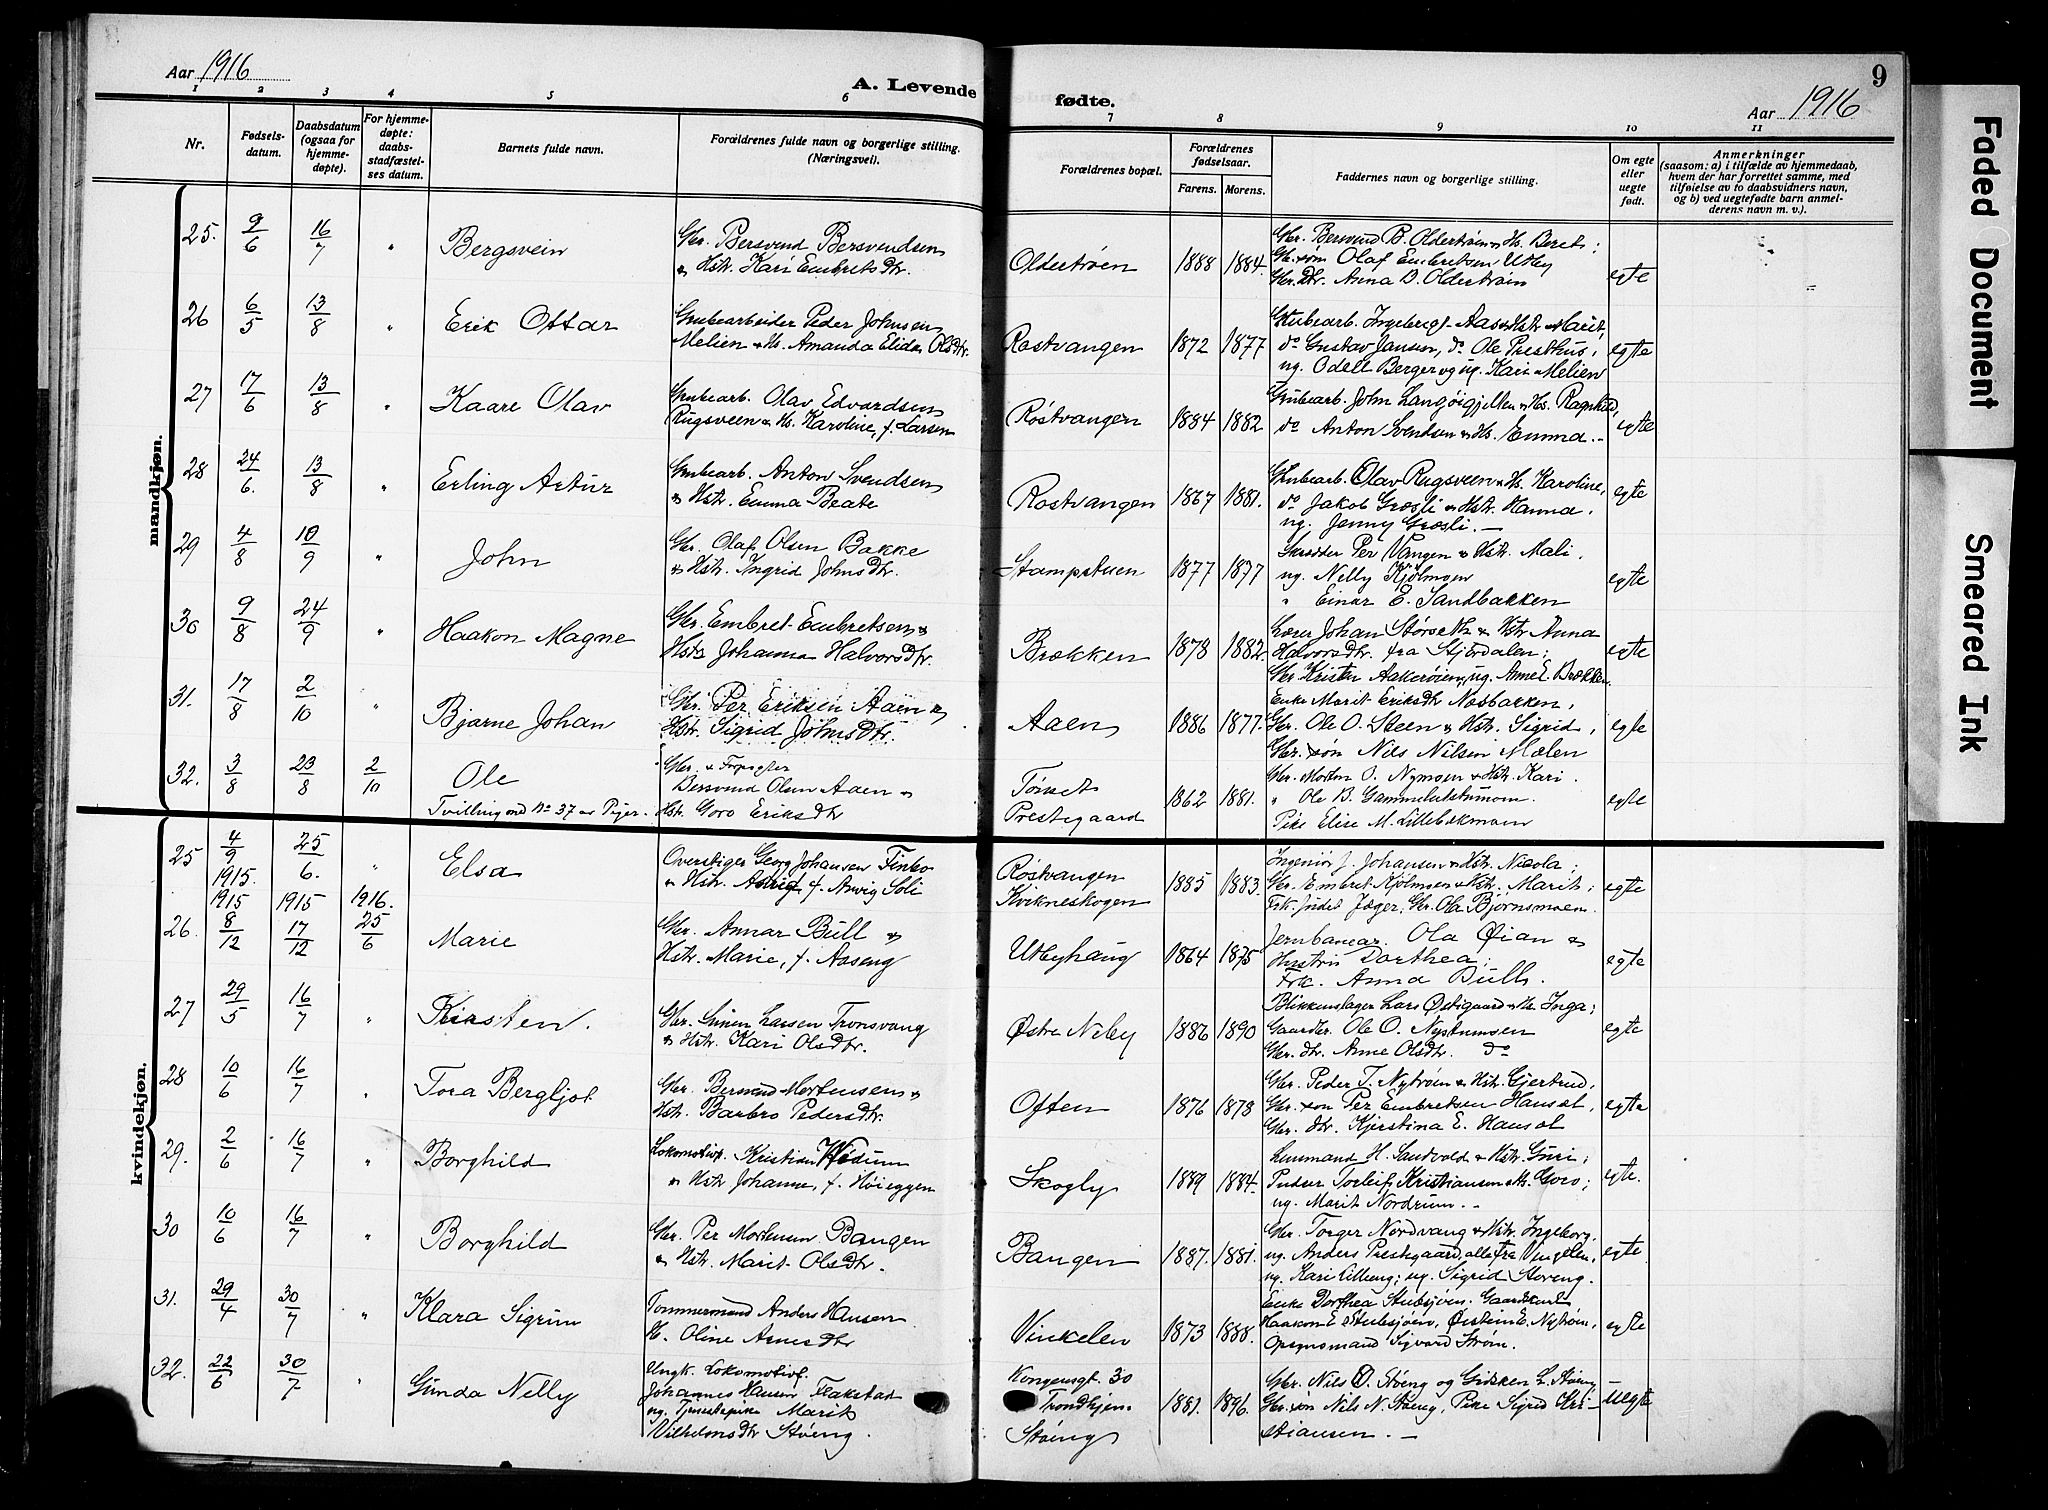 Aar 1916
A. Levende
fødte.
9
Aar 1916
1 2 3 4 5 6 7 8 9 10 11
Nr.
Fødsels-
datum.
Daabsdatum
(ogsaa for
hjemme-
døpte).
For hjemme-
døpte:
daabs-
stadfæstel-
ses datum.
Barnets fulde navn.
Forældrenes fulde navn og borgerlige stilling.
(Næringsvei).
Forældrenes bopæl.
Forældrenes
fødselsaar.
Farens. Morens.
Faddernes navn og borgerlige stilling.
Om egte
eller
uegte
født.
Anmerkninger
(saasom: a) i tilfælde av hjemmedaab,
hvem der har forrettet samme, med
tilføielse av to daabsvidners navn,
og b) ved uegtefødte barn anmel-
derens navn m. v.).
mandkjøn.
25. 9/6 16/7 " Bergsvein
Gbr. Bersvend Bersvendsen
& Hstr. Kari Embretsdtr.
Oldertrøen 1888 1884.
Gbr. Bersvend B. Oldertrøen & Hs. Beret;
Gbr. søn Olaf Embretsen Utby
Gbr. Dtr. Anna B. Oldertrøen
egte
26 6/5 13/8 " Erik Ottar
Grubearbeider Peder Johnsen
Melien & Hs. Amanda Elida Olsdtr.
Røstvangen 1872 1877
Grubearb. Ingebrigt Aas & Hstr. Marit,
do Gustav Jansen, do Ole Presthus,
ug. Odell Berger og ug. Kari Melien
egte
27 17/6 13/8 " Kaare Olav
Grubearb. Olav Edvardsen
Rugsveen & Hs. Karoline, f. Larsen
Røstvangen 1884 1882
Grubearb. John Langøigjelten & Hs. Ragnhild,
do Anton Svendsen & Hs. Emma.-
egte
28 24/6. 13/8 " Erling Artur
Grubearb. Anton Svendsen
& Hstr. Emma Beate
Røstvangen 1867 1881.
Grubearb. Olav Rugsveen & Hs. Karoline,
do Jakob Græsli & Hstr. Hanna,
ug. Jenny Græsli.-
egte
29 4/8 10/9 " John
Gbr. Olaf Olsen Bakke
& Hstr. Ingrid Johnsdtr.
Stampstuen 1877 1877
Skrædder Per Vangen & Hstr. Mali.
ug. Nelly Kjølmoen
" Einar E. Sandbakken
egte
30 9/8 24/9 " Haakon Magne
Gbr. Embret Embretsen &
Hstr. Johanna Halvorsdtr.
Brækken 1878 1882
Lærer Johan Størseth & Hstr Anna
Halvorsdtr. fra Stjørdalen;
Gbr Krister Aakerøien, ug. Anne E. Brækken.
egte
31. 17/8 2/10 " Bjarne Johan
Gbr. Per Eriksen Aaen &
Hstr. Sigrid Johnsdtr.
Aaen 1886 1877
Enke Marit Eriksdtr Næsbakken,
Gbr. Ole O. Steen & Hstr. Sigrid,
Gbr. søn Nils Nilsen Mælen
egte
32. 3/8 23/8 2/10 Ole
Tvilling med No 37 av Piger.
Gbr. & Forpagter
Bersvend Olsen Aaen &
Hstr. Goro Eriksdtr
Tønset
Prestegaard
1862 1881.
Gbr. Morten O. Nymoen & Hstr. Kari.
" Ole B. Gammelutstumoen.
Pike Elise M. Lillebækmoen
egte
kvindekjøn.
25 4/9 1915. 25/6. " Elsa
Overstiger Georg Johansen Finbo
& Hstr. Astrid f. Arvig Soli
Røstvangen
Kvikneskogen
1885 1883
Ingeniør J. Johansen & Hstr. Nicola;
Gbr. Embret Kjølmoen & Hstr. Marit;
Frk. Judet Jæger, Gbr. Ola Bjørnsmoen.
egte
1915 1915 1916.
26. 8/12 17/12 25/6 Marie
Gbr. Annar Bull &
Hstr. Marie, f. Aaseng
Utbyhaug 1864 1875
Jernbanear. Ola Øian &
Hustru Dorthea;
Frk. Anna Bull.
egte
27 29/5 16/7 " Kirsten.
Gbr. Simen Larsen Tronsvang
& Hstr. Kari Olsdtr.
Østre Neby 1886 1890
Blikkenslager Lars Østigaard & Hs. Inga;
Gaardbr. Ole O. Nystumoen
Gbr. dtr. Anne Olsdtr. do
egte
28 10/6 16/7 " Tora Bergljot
Gbr. Bersvend Mortensen &
Hstr. Barbro Pedersdtr.
Often 1876 1878
Gbr. Peder T. Nytrøen & Hstr. Gjertrud,
Gbr. søn Per Embretsen Hauset,
Gbr. dtr. Kjerstina E. Hauset
egte
29. 2/6 16/7 " Borghild
Lokomotivf. Kristian Widum
& Hstr Johanne, f. Høieggen
Skogly 1889 1884.
Lensmand H. Sandvold & Hstr. Guri;
Pudser Torleif Kristiansen & Hs. Goro;
ug. Marit Nordrum.-
egte.
30 10/6 16/7 " Borghild
Gbr. Per Mortensen Bangen
& Hstr. Marit Olsdtr.
Bangen 1887. 1881.
Gbr. Torger Nordvang & Hstr. Ingeborg,
ug. Anders Prestegaard, alle fra Vingelen,
ug. Kari Lilleeng; ug. Sigrid Støveng.
egte
31. 29/4 30/7 " Klara Sigrun
Tømmermand Anders Hansen
H. Oline Arnesdtr
Vinkelen 1873 1888.
Enke Dorthea Stubsjøen. Gaardbrukr.
Haakon E. Stubsjøen, Østein E. Nytrøen,
Opsynsmand Sigvard Strøm.
egte
32. 22/6 30/7 " Gunda Nelly
Ungk. Lokomotivf.
Johannes Hansen Flakstad
ug. Tjenestepike Marit
Vilhelmsdtr Støeng.
Kongensgt. 30
Trondhjem.
Støeng
1881. 1896.
Gbr. Nils O. Støeng og Gidsken L. Støeng,
Gbr. søn Nils N. Støeng, Pike Sigrid Kri-
stiansen.-
uegte
Faded Document
Smeared Ink